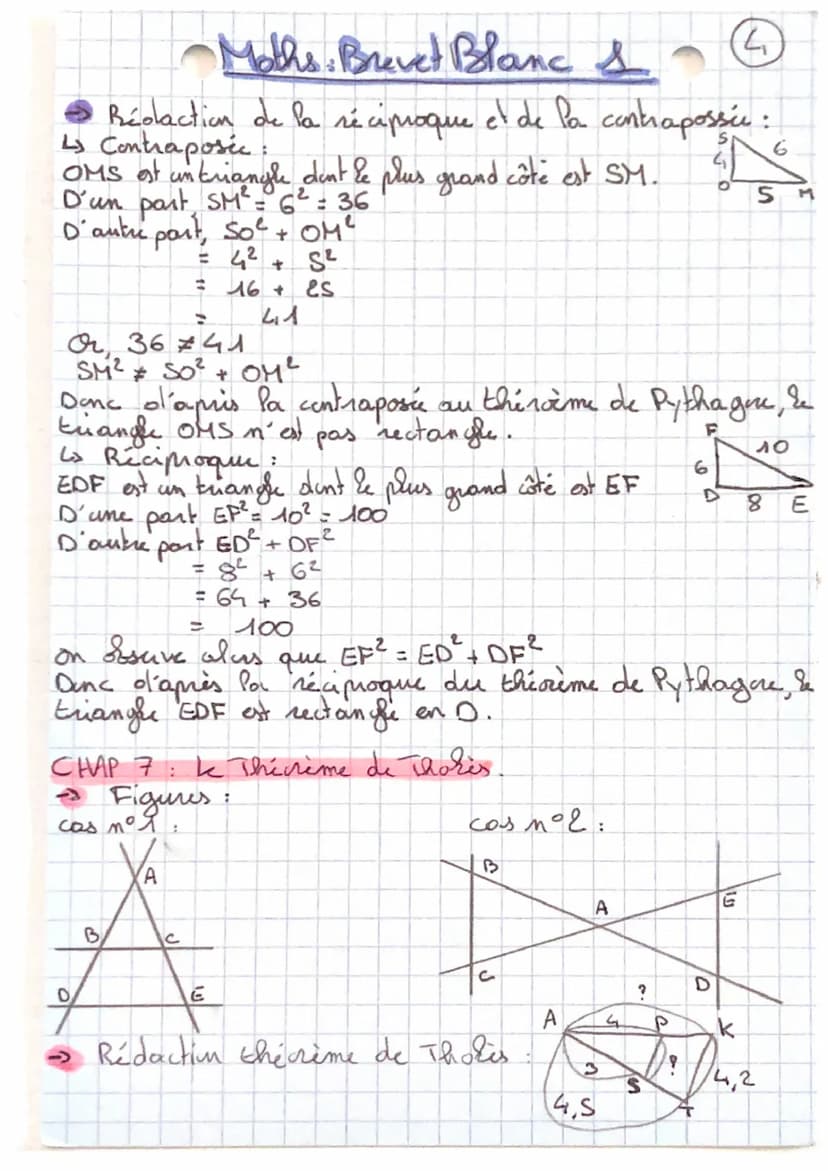 Maths : Brevet Blanc 1
4
→ Rédaction de la réciproque et de la contraposée :
↳ Contraposée :
OMS est un triangle dont le plus grand côté est SM.
S 6
4
O 5 M
D'un part, SM² = 6² = 36
D'autre part, SO² + OM²
= 4² + 5²
= 16 + 25
= 41
Or, 36 ≠ 41
SM² ≠ SO² + OM²
Donc d'après la contraposée au théroème de Pythagore, le
triangle OMS n'est pas rectangle.
↳ Réciproque :
F 10
6
D 8 E
EDF est un triangle dont le plus grand côté est EF
D'une part EF² = 10² = 100
D'autre part ED² + DF²
= 8² + 6²
= 64 + 36
= 100
on observe alors que EF² = ED² + DF²
Donc d'après la réciproque du théorème de Pythagore, le
triangle EDF est rectangle en D.
CHAP 7 : le Théorème de Thalès.
→ Figures :
cas n°1 :
cas n°2 :
A
B C
D E
B
A E
C
D
→ Rédaction théorème de Thalès :
?
A 4 P K
3 S ? 4,2
4,5 T